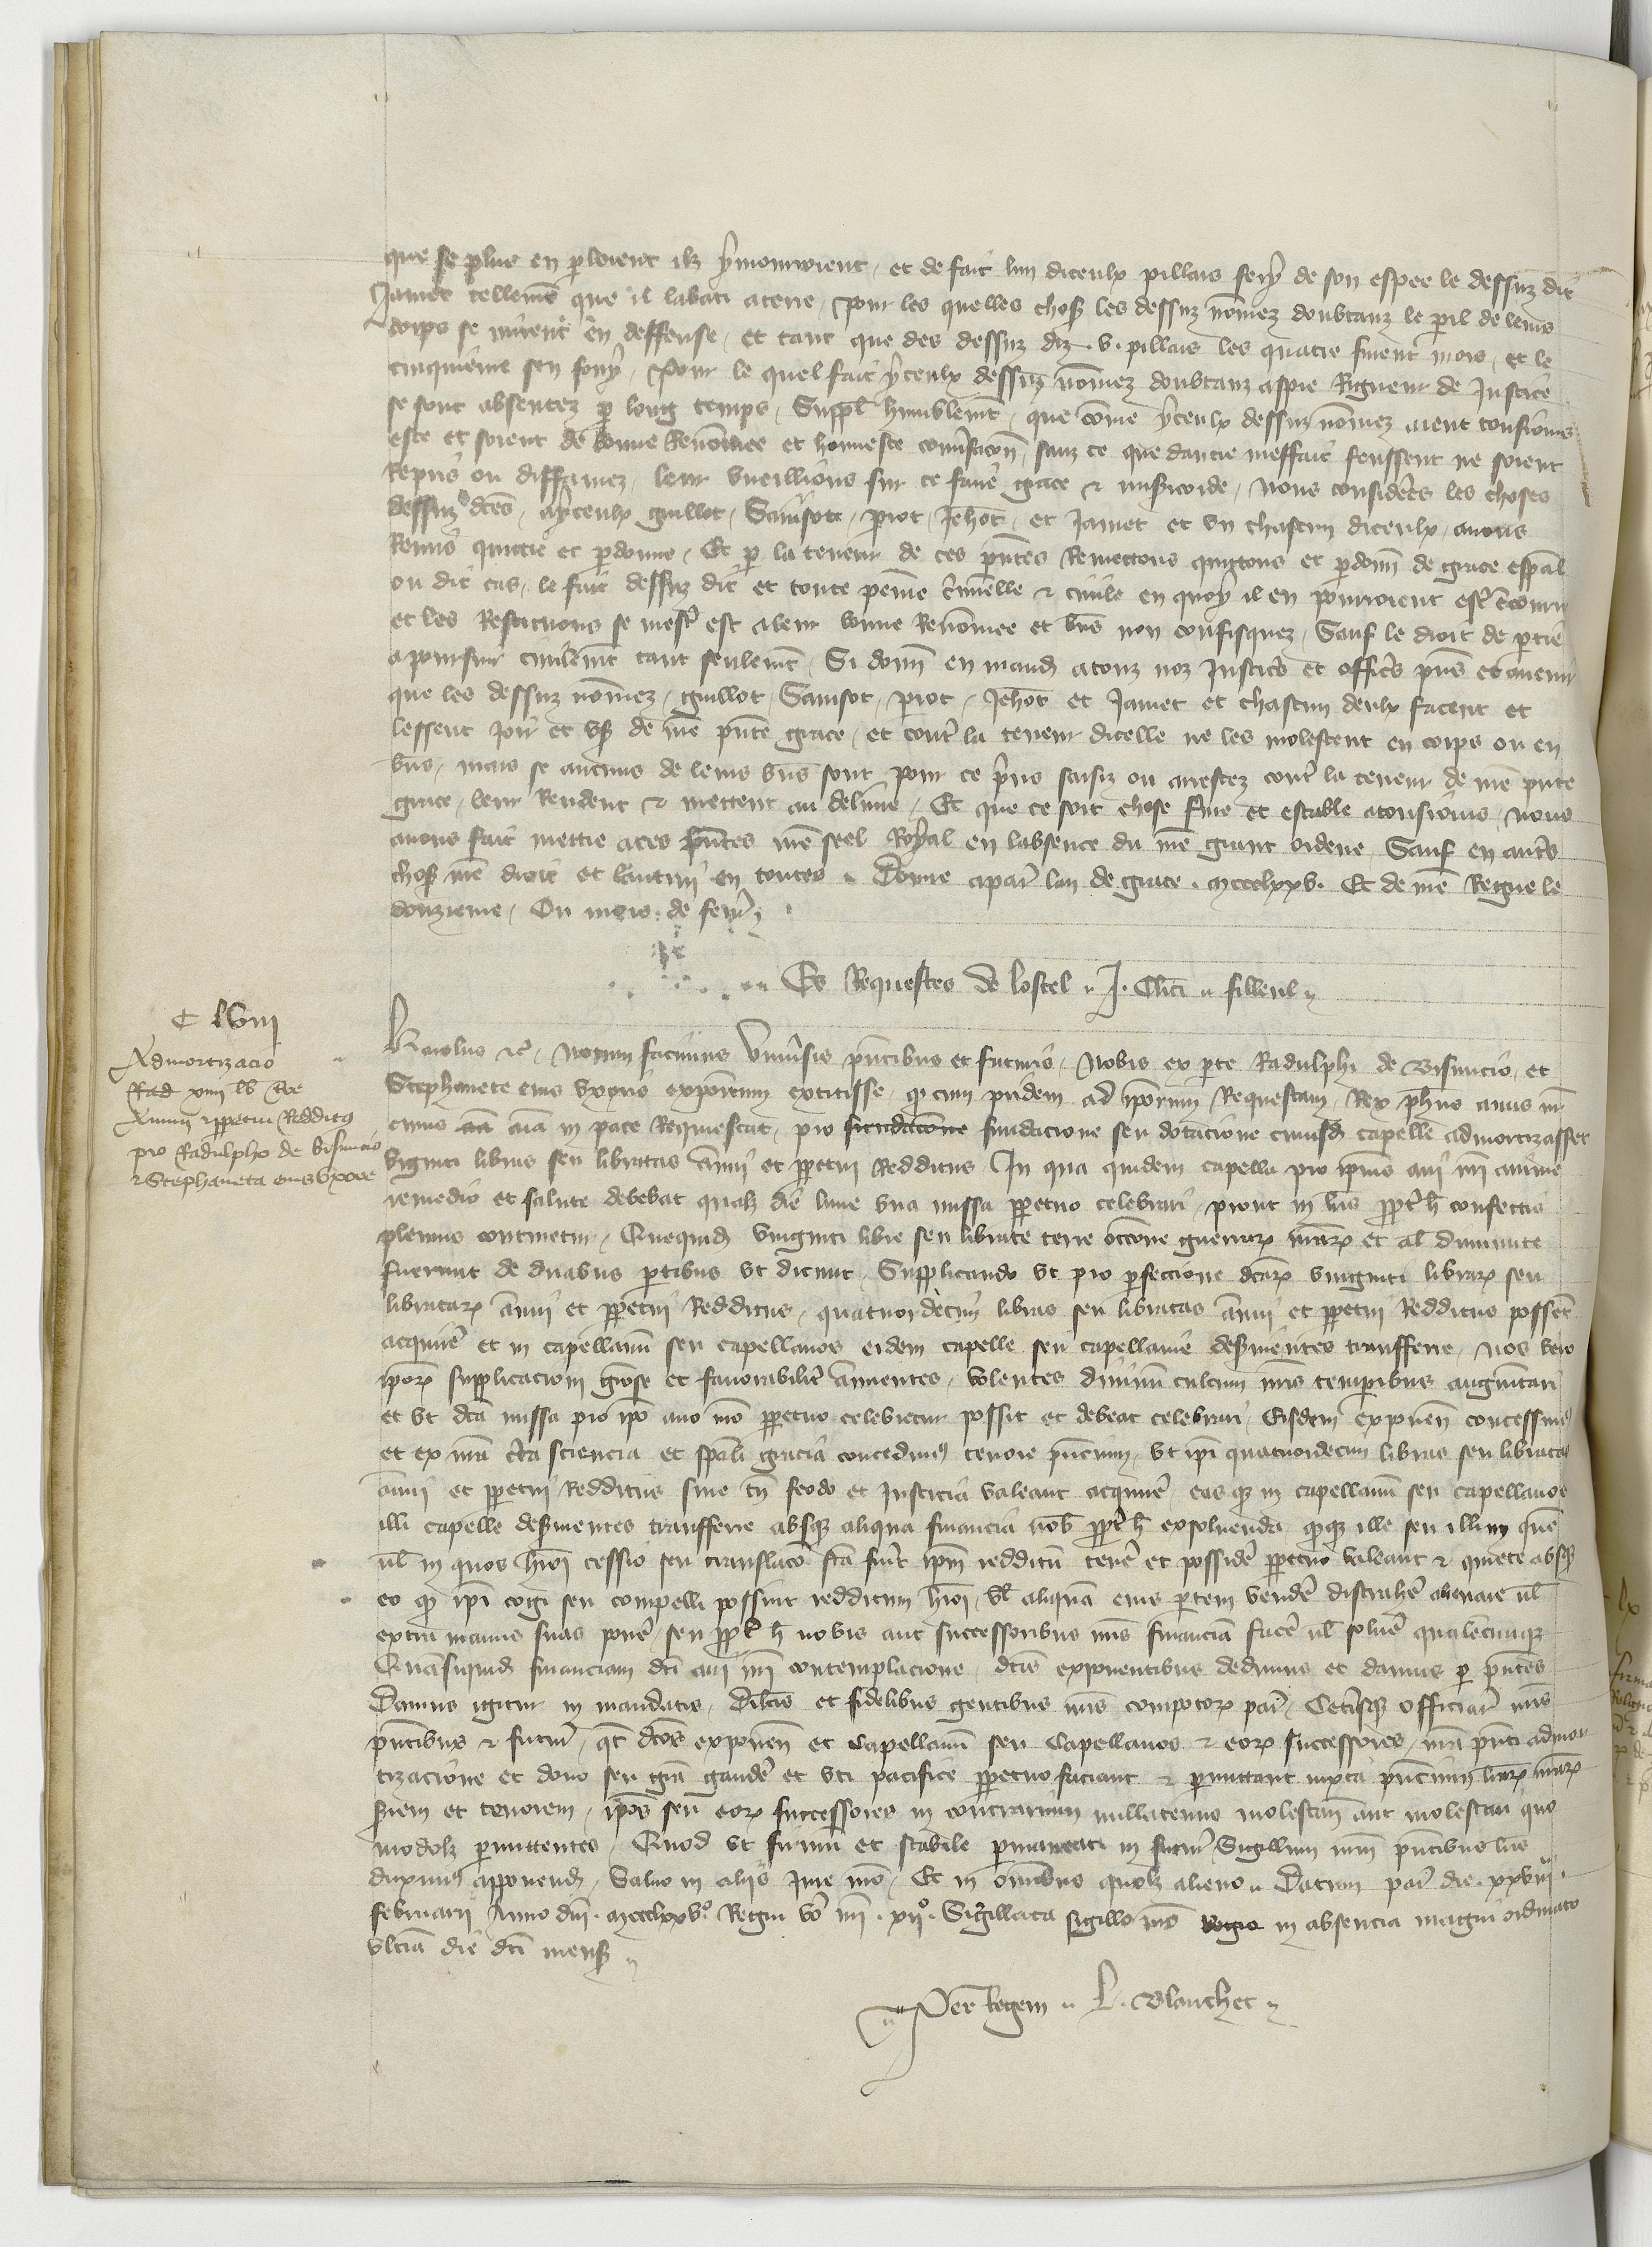 que se plus en parloient ilz y mourroient / et de fait lun diceulx pillars fery de son espee le dessuz dit
Jamet tellemēt que il labati a terre / Pour les quelles choses les dessuz nōmez doubtanz le peril de leurs
corps se mirent en deffense / et tant que des dessuz diz .v. pillars les quatre furent mors / et le
cinquieme sen fouy / Pour le quel fait yceulx dessuz nōmez doubtanz aspre Rigueur de Justice
se sont absentez par long temps / Suppl humblemt / que cōme yceulx dessuz nōmez aient tousiours
este et soient de bonne Renōmee et honneste conversacon / sanz ce que dautre meffait feussent ne soient
Repris ou diffamez / leur vueillions sur ce faire grace & misericorde / Nous considerés les choses
dessuz dces / a yceulx guillot / Sansot / Perrot / Jehot / et Jamet et un chascun diceulx / avons
Remis quittie et pardonne / Et par la teneur de ces pntes Remettons quittons et pardonns de grace espal
ou dit cas / le fait dessuz dit et toute peine criminelle & civile en quoy il en pourroient estre encouru
et les Restituons se mestier est a leur bonne Renōmee et biens non confisquez / Sauf le droit de partie
a poursuir civilemt tant seulemt / Si donns en mandt a touz noz Justices et offics pns et avenir
que les dessuz nōmez / guillot / Sansot / Perrot / Jehot et Jamet et chascun deulx facent et
lessent joir et user de nre pnte grace / et contre la teneur dicelle ne les molestent en corps ou en
biens / mais se aucuns de leurs biens sont pour ce prins saisiz ou arrestez contre la teneur de nre pnte
grace / leur Rendent & mettent au delivre / Et que ce soit chose ferme et estable a tousiours / Nous
avons fait mettre a ces pntes nre seel Royal en labsence du nre grant ordene / Sauf en autres
choses nre droit et lautruy en toutes // Donne a paris lan de grace . mccclxxv . Et de nre Regne le
douzieme / Ou mois de fevrier
Es Requestes de lostel // J. Clici // filleul //
C lviij
Admortizacio
Rad xiiij lb tre
Annui & perpetui Redditus
pro Radulpho de bisuncio
& Stephaneta eius uxore
Karolus &c / Notum facimus Universis pntibus et futuris / Nobis ex parte Radulphi de Bisuncio / et
Stephanete eius uxoris expositum extitisse / quod cum pridem ad ipsorum Requestam / Rex phus avus nr
cuius aia in pace Requiescat / pro fundacione seu dotacione cuiusd capelle admortizasset
viginti libras seu libratas annui et perpetui Redditus In qua quidem capella pro ipsius avi nri anime
remedio et salute debebat qualz die lune una missa perpetuo celebrari / prout in lris propter h confectis
plenius continetur / Quequid viginti libre seu librate terre occone guerrarz nrarz et al diminute
fuerunt de duabus partibus ut dicunt / Supplicando ut pro perfeccione dcarz viginti librarz seu
libratarz annui et perpetui Redditus / quatuordecim libras seu libratas annui et perpetui Redditus possent
acquirere et in capellanum seu capellanos eidem capelle seu capellanie deservientes transferre / Nos vero
ipsorz supplicacioni gratiose et favorabiliter annuentes / volentes divinum cultum nris temporibus augmentari
et ut dca missa pro ipso avo nro perpetuo celebretur possit et debeat celebrari / Eisdem exponen concessimus
et ex nra certa sciencia et spali gracia concedimus tenore pncium / ut ipi quatuordecim libras seu libratas
annui et perpetui Redditus sine tn feodo et Justicia valeant acquirere / eas qz in capellanum seu capellanos
illi capelle deservientes transferre absqz aliqua financia nob propter h exsolvenda / quodqz ille seu illi in quem
vel in quos hmoi cessio seu translaco fca fuit ipm redditum tenere et possidere perpetuo valeant & quiete absqz
eo quod ipi cogi seu compelli possint redditum hmoi / vel aliquam eius partem vendere distrahere alienare vel
extra manus suas ponere / seu propter h nobis aut successoribus nris financiam facere vel solvere qualemcunqz
Quamsiquid financiam dci avi nri contemplacione / dcis exponentibus dedimus et damus per pntes
Damus igitur in mandatis / Dilcis et fidelibus gentibus nris compotorz paris / Ceterisqz officiar nris
pntibus & futur / qt dcos exponen et capellanum seu Capellanos & eorz successores / nra pnti admor
tizacione et dono seu gra gaudere et uti pacifice perpetuo faciant & permittant iuxta pncium lrarz nrarz
seriem et tenorem / ipos seu eorz successores in contrarium nullatenus molestan aut molestari quo
modolz permittentes / Quod ut firmum et stabile permaneat in futur Sigillum nrm pntibus lris
duximus apponend / Salvo in aliis Jure nro / Et in omibus quolz alieno // Datum paris die . xxviij
februarii Anno dni . mccclxxv° . Regni vo nri . xij° . Sigillata sigillo nro in absencia magni ordinato
ultia die dci mensis //
Per Regem // L. Blanchet //